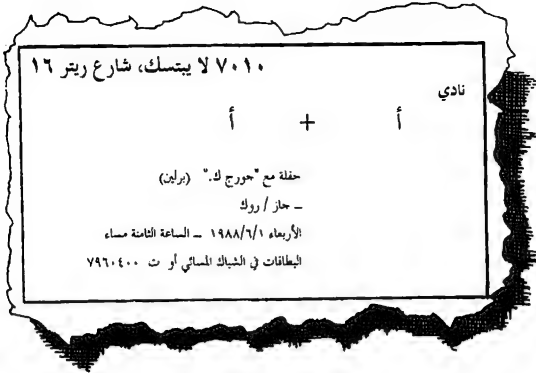 ٧٠١٠ لا يبتسك، شارع ريتر ١٦
نادي
أ + أ
حفلة مع "جورج ك." (برلين)
ــ جاز / روك
الأربعاء ١٩٨٨/٦/١ ــ الساعة الثامنة مساء
البطاقات في الشباك المسائي أو ت ٧٩٦٠٤٠٠